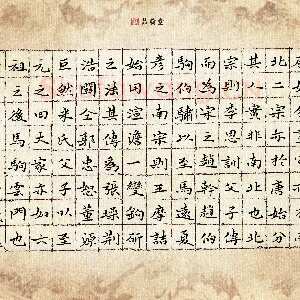 北二宗亦於唐始分
其人實非於南北也
宗則李思訓父子傳
而為宋之趙幹趙伯
駒伯驌以至馬遠夏
彥之南宗則王摩詰
始用渲澹一變鉤斫
之法其傳為張璪荊
浩關仝郭忠恕董源
巨然米氏父子以至
元之四大家亦如六
祖之後馬駒雲門也